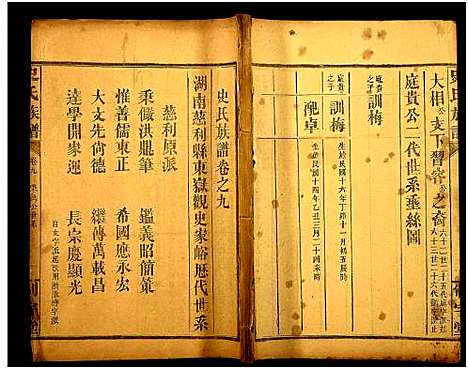 大相公支下習容公之裔
庭貴公二代世系垂絲圖
庭貴之子
訓梅
生於民國十六年丁卯十一月初五辰時
庭貴之子
配卓
生於民國十四年乙丑三月二十四未時
史氏族譜卷之九
湖南慈利縣東嶽觀史家峪歷代世系
慈利原派
秉傚洪鼎筆
鑑義昭簡策
惟善儒東正
希國應永宏
大文先尚德
繼傳萬載昌
達學開家運
長宗慶顯光
史氏族譜
卷九